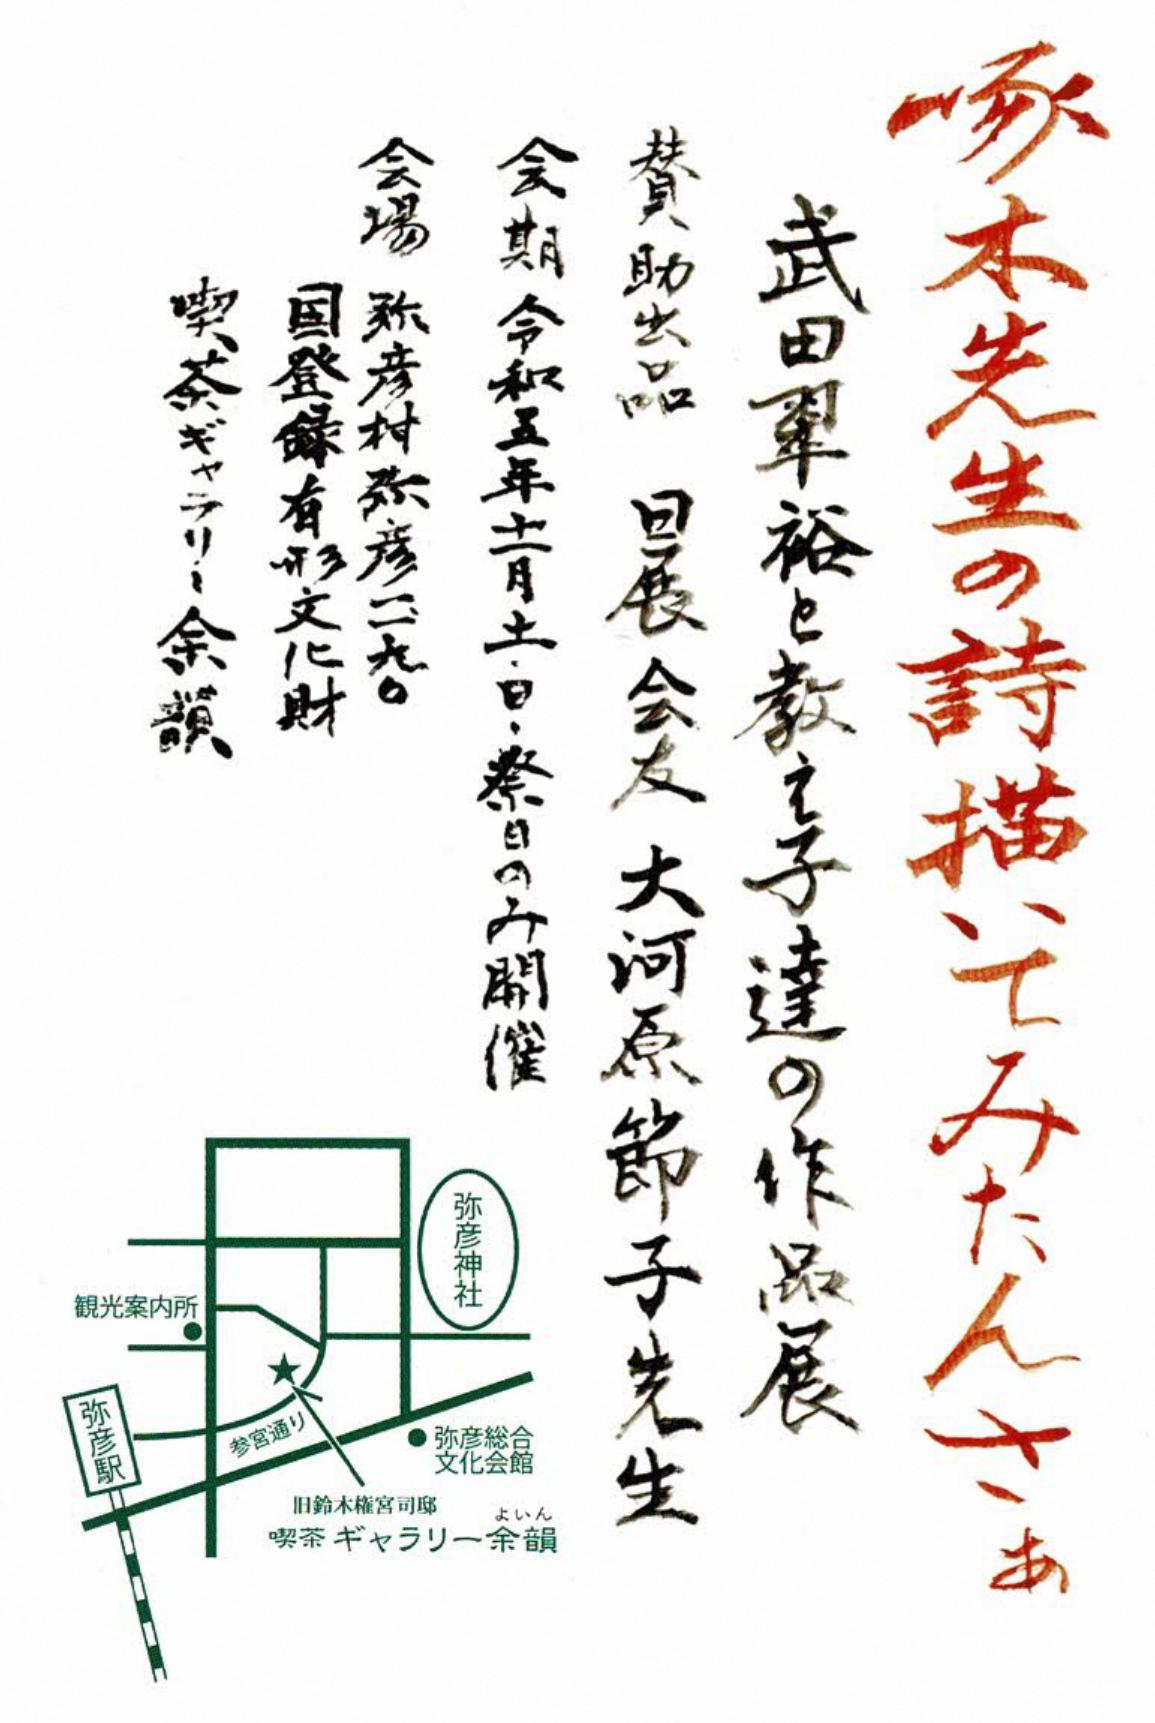 啄木先生の詩描いてみたんさぁ
武田翠裕と教え子達の作品展
賛助出品 日展会友 大河原節子先生
会期 令和五年十一月土・日・祭日のみ開催
会場 弥彦村弥彦一二九〇
国登録有形文化財
喫茶ギャラリー余韻
弥彦神社
観光案内所
弥彦駅
参宮通り
弥彦総合
文化会館
旧鈴木権宮司邸
よいん
喫茶 ギャラリー余韻